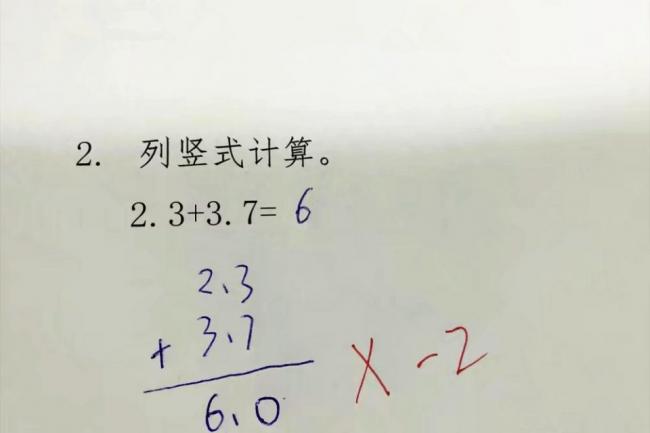 2. 列竖式计算。
2.3+3.7= 6
2.3
+ 3.7
6.0
X -2